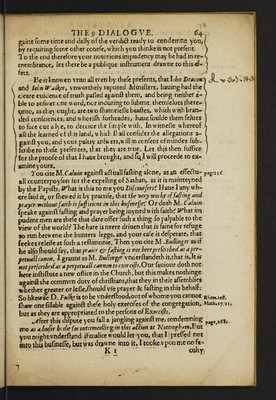 THE 9 DIALOGVE. 64
gaine some time and dally of the verdict ready to condemne you,
by requiring some other course, which you thinke is not present.
To the end therefore your notorious impudency may be had in re-
membrance, let there be a publique instrument drawne to this ef-
fect.
Be it knowen vnto all men by these presents, that Iohn Deacon
and Iohn Walker, vnworthely reputed Ministers, hauing had the
cleare euidence of truth passed against them, and being neither a-
ble to answer one word, nor inducing to submit themselues there-
vnto, as they ought, are two shamelesse beastes, which with bran-
ded consciences, and whorish forheades, haue sought them selues
to face out a lye, to deceiue the simple with. In witnesse whereof
all the learned of this land, which shal consider the allegations a-
gainst you, and your paltry answers, will in consent of mindes sub-
scribe to these presents, that they are true. Let this then suffice
for the proofe of that I haue brought, and so I will proceede to exa-
mine yours.
You cite M. Caluin against actuall fasting alone, as an effectu-
all counterpoyson for the expelling of Sathan, as it is mainteyned
by the Papists. What is this to me you Discoursers? Haue I any where
said it, or shewed it by practise, that the very worke of fasting and
prayer without faith is sufficient in this busines? Or doth M. Caluin
speake against fasting and prayer being ioyned with faith? What im-
pudent men are these that dare offer such a thing so palpable to the
view of the world? The hare is neere driuen that is faine for refuge
to run betwene the hunters legges, and your case is desperate, that
seekes releefe at such a testimonie. Then you cite M. Bullinger as if
he also should say, that praier & fasting is not here prescribed as a per-
petuall canon. I graunt as M. Bullinger vnderstandeth it, that is, It is
not prescribed as a perpetuall cannon to exorcists. Our sauiour doth not
here institute a new office in the Church, but this makes nothinge
against the common duty of christians, that they in their assemblies
whether greater or lesse, should vse prayer & fasting in this behalfe.
So likewise D. Fulke is to be vnderstood, out of whome you cannot
shew one sillable against these holy exercises of the congregation,
but as they are appropriated to the persons of Exorcists.
After this dispute you fall a iangling against me, condemning
me as a busie bodie for intermedling in this action at Nottingham. But
you might vnderstand if malice would let you, that I pressed not
into this businesse, but was drawne into it. I tooke vpon me no fa-
K 1 culty